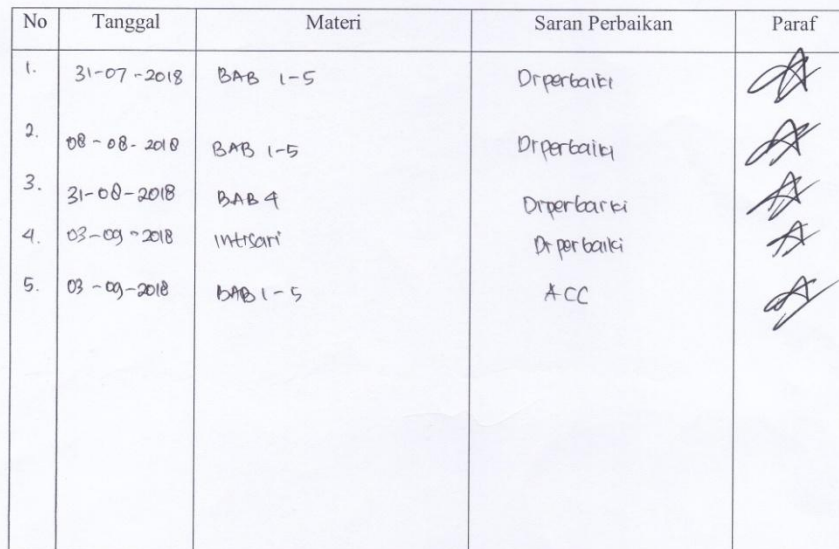 No Tanggal Materi Saran Perbaikan Paraf
1. 31-07-2018 BAB 1-5 Diperbaiki
2. 08-08-2018 BAB 1-5 Diperbaiki
3. 31-08-2018 BAB 4 Diperbaiki
4. 03-09-2018 Intisari Diperbaiki
5. 03-09-2018 BAB 1-5 ACC